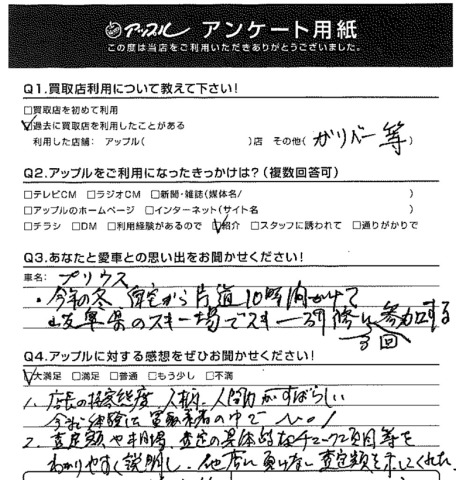 アップル アンケート用紙
この度は当店をご利用いただきありがとうございました。
Q1.買取店利用について教えて下さい!
□買取店を初めて利用
□過去に買取店を利用したことがある
利用した店舗： アップル( )店 その他( ガリバー 等 )
Q2.アップルをご利用になったきっかけは?(複数回答可)
□テレビCM □ラジオCM □新聞・雑誌(媒体名/ )
□アップルのホームページ □インターネット(サイト名 )
□チラシ □DM □利用経験があるので □紹介 □スタッフに誘われて □通りがかりで
Q3.あなたと愛車との思い出をお聞かせください!
車名: プリウス
・今年の冬 自宅から片道10時間かけて
岐阜県のスキー場でスキー研修に参加する
3回
Q4.アップルに対する感想をぜひお聞かせください!
□大満足 □満足 □普通 □もう少し □不満
1、店長の接客態度、人柄、人間力がすばらしい
今まで体験した買取業者の中で No.1
2、査定額や相場、査定の具体的なチェック項目等を
わかりやすく説明し、他店に負けない査定額を示してくれた